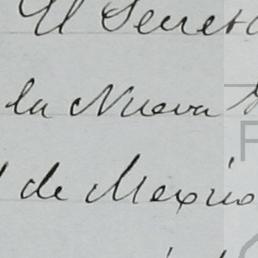 El Secret
la Nueva
de Mexico